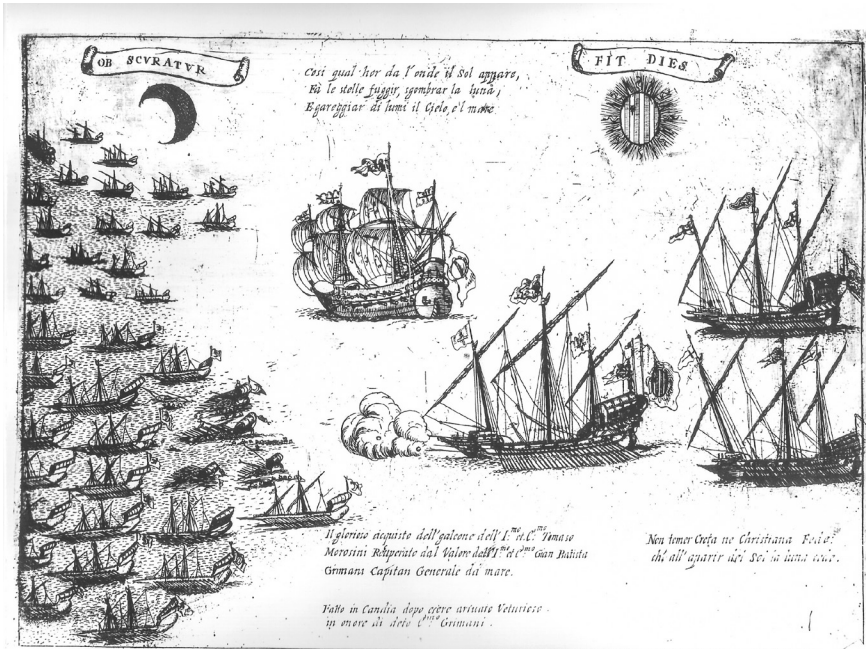 OB SCVRATVR
FIT DIES
Cosi qual hor da l'onde il Sol appare,
Fà le stelle fuggir, sgombrar la luna,
E gareggiar di lumi il Cielo, e'l mare
Il glorioso acquisto dell'galeone dell' I.mo et C.mo Tomaso
Morosini Recuperato dal Valore dell' I.mo et C.mo Gian Batista
Grimani Capitan Generale da mare.
Non temer Creta ne Christiana Fede
ch'all'aparir del Sol la luna cede.
Fatto in Candia dopo essere arivato Veturioso
in onore di deto C.mo Grimani.